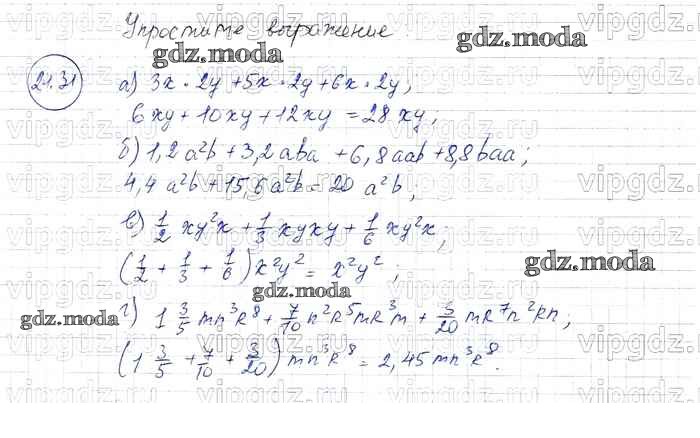 Упростите выражение
gdz.moda
gdz.moda
21.31
а) 3x · 2y + 5x · 2y + 6x · 2y;
6xy + 10xy + 12xy = 28xy;
б) 1,2a²b + 3,2aba + 6,8aab + 8,8baa;
4,4a²b + 15,6a²b = 20a²b;
в) 1/2 xy²x + 1/3 xyxy + 1/6 xy²x;
(1/2 + 1/3 + 1/6) x²y² = x²y²;
gdz.moda
gdz.moda
gdz.moda
г) 1 3/5 mn³k⁸ + 7/10 n²k⁵mk³n + 3/20 mk⁷n²kn;
(1 3/5 + 7/10 + 3/20) mn³k⁸ = 2,45mn³k⁸.
gdz.moda
vipgdz.ru